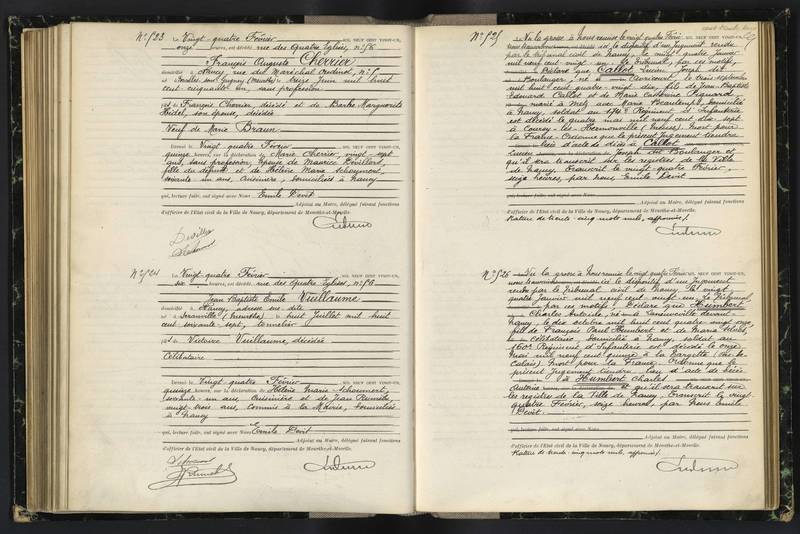 N° 523
Le Vingt-quatre Février mil neuf cent vingt-un,
onze heures, est décédé rue des Quatre Églises, n° 56
François Auguste Cherrier
domicilié à Nancy, rue du Maréchal Oudinot, n° 5
né à (Meurthe) le treize Juin mil huit
cent cinquante un, sans profession
fils de François Cherrier, décédé et de Barbe Marguerite
son épouse, décédée
Veuf de Marie Braun
Dressé le Vingt quatre Février mil neuf cent vingt-un,
quinze heures, sur la déclaration de Marie Cherrier, vingt sept
ans, sans profession, épouse de Maurice
fille du défunt et de Hélène Marie
soixante un ans, cuisinière, domiciliées à Nancy
qui, lecture faite, ont signé avec Nous Emile Devit
Adjoint au Maire, délégué faisant fonctions
d'officier de l'État civil de la Ville de Nancy, département de Meurthe-et-Moselle.
N° 524
Le Vingt quatre Février mil neuf cent vingt-un,
six heures, est décédé rue des Quatre Églises, n° 56
Jean Baptiste Emile Vuillaume
domicilié à Nancy, adresse sus dite
né à (Meurthe) le huit Juillet mil huit
cent soixante-sept, tonnelier
fils de Victoire Vuillaume, décédée
Célibataire
Dressé le Vingt quatre Février mil neuf cent vingt-un,
quinze heures, sur la déclaration de Hélène Marie
soixante un ans, cuisinière et de Jean
vingt-trois ans, commis à la Mairie, domiciliés
à Nancy
qui, lecture faite, ont signé avec Nous Emile Devit
Adjoint au Maire, délégué faisant fonctions
d'officier de l'État civil de la Ville de Nancy, département de Meurthe-et-Moselle.
N° 525
Vu la grosse à nous remise le vingt quatre Février mil neuf cent vingt-un,
ici le dispositif d'un Jugement rendu
par le tribunal civil de Nancy, le vingt quatre Janvier
mil neuf cent vingt un. Le tribunal, par ces motifs,
Déclare que Callot Lucien Joseph dit
Boulanger, né à Avricourt le trois septembre
mil huit cent quatre-vingt dix, fils de Jean Baptiste
Edouard Callot et de Marie Catherine Pignard,
marié à Metz avec Marie domicilié
à Nancy, soldat au Régiment d'Infanterie
est décédé le quatre mai mil neuf cent dix-sept
à Courcy-les-Hermonville (Marne). Mort pour
la France. Ordonne que le présent Jugement tiendra
lieu d'acte de décès à Callot
Lucien Joseph dit Boulanger et
qu'il sera transcrit sur les registres de la Ville
de Nancy. Transcrit le vingt-quatre Février,
seize heures, par nous Emile Devit
Adjoint au Maire, délégué faisant fonctions
d'officier de l'État civil de la Ville de Nancy, département de Meurthe-et-Moselle.
Rature de trente-cinq mots nuls, approuvée.
N° 526
Vu la grosse à nous remise le vingt quatre Février mil neuf cent vingt-un,
ici le dispositif d'un Jugement
rendu par le Tribunal civil de Nancy le vingt
quatre Janvier mil neuf cent vingt-un. Le Tribunal,
par ces motifs, Déclare que Humbert
Charles Antoine, né à Laneuveville devant
Nancy, le dix octobre mil huit cent quatre-vingt onze,
fils de François Paul Humbert et de Marie
célibataire, domicilié à Nancy, soldat au
160e Régiment d'Infanterie est décédé le onze
Mai mil neuf cent quinze à la Targette (Pas-de-
Calais). Mort pour la France. Ordonne que le
présent Jugement tiendra lieu d'acte de décès
à Humbert Charles
Antoine qu'il sera transcrit sur
les registres de la Ville de Nancy. Transcrit le vingt
quatre Février, seize heures, par Nous Emile
Devit
Adjoint au Maire, délégué faisant fonctions
d'officier de l'État civil de la Ville de Nancy, département de Meurthe-et-Moselle.
Rature de trente-cinq mots nuls, approuvée.